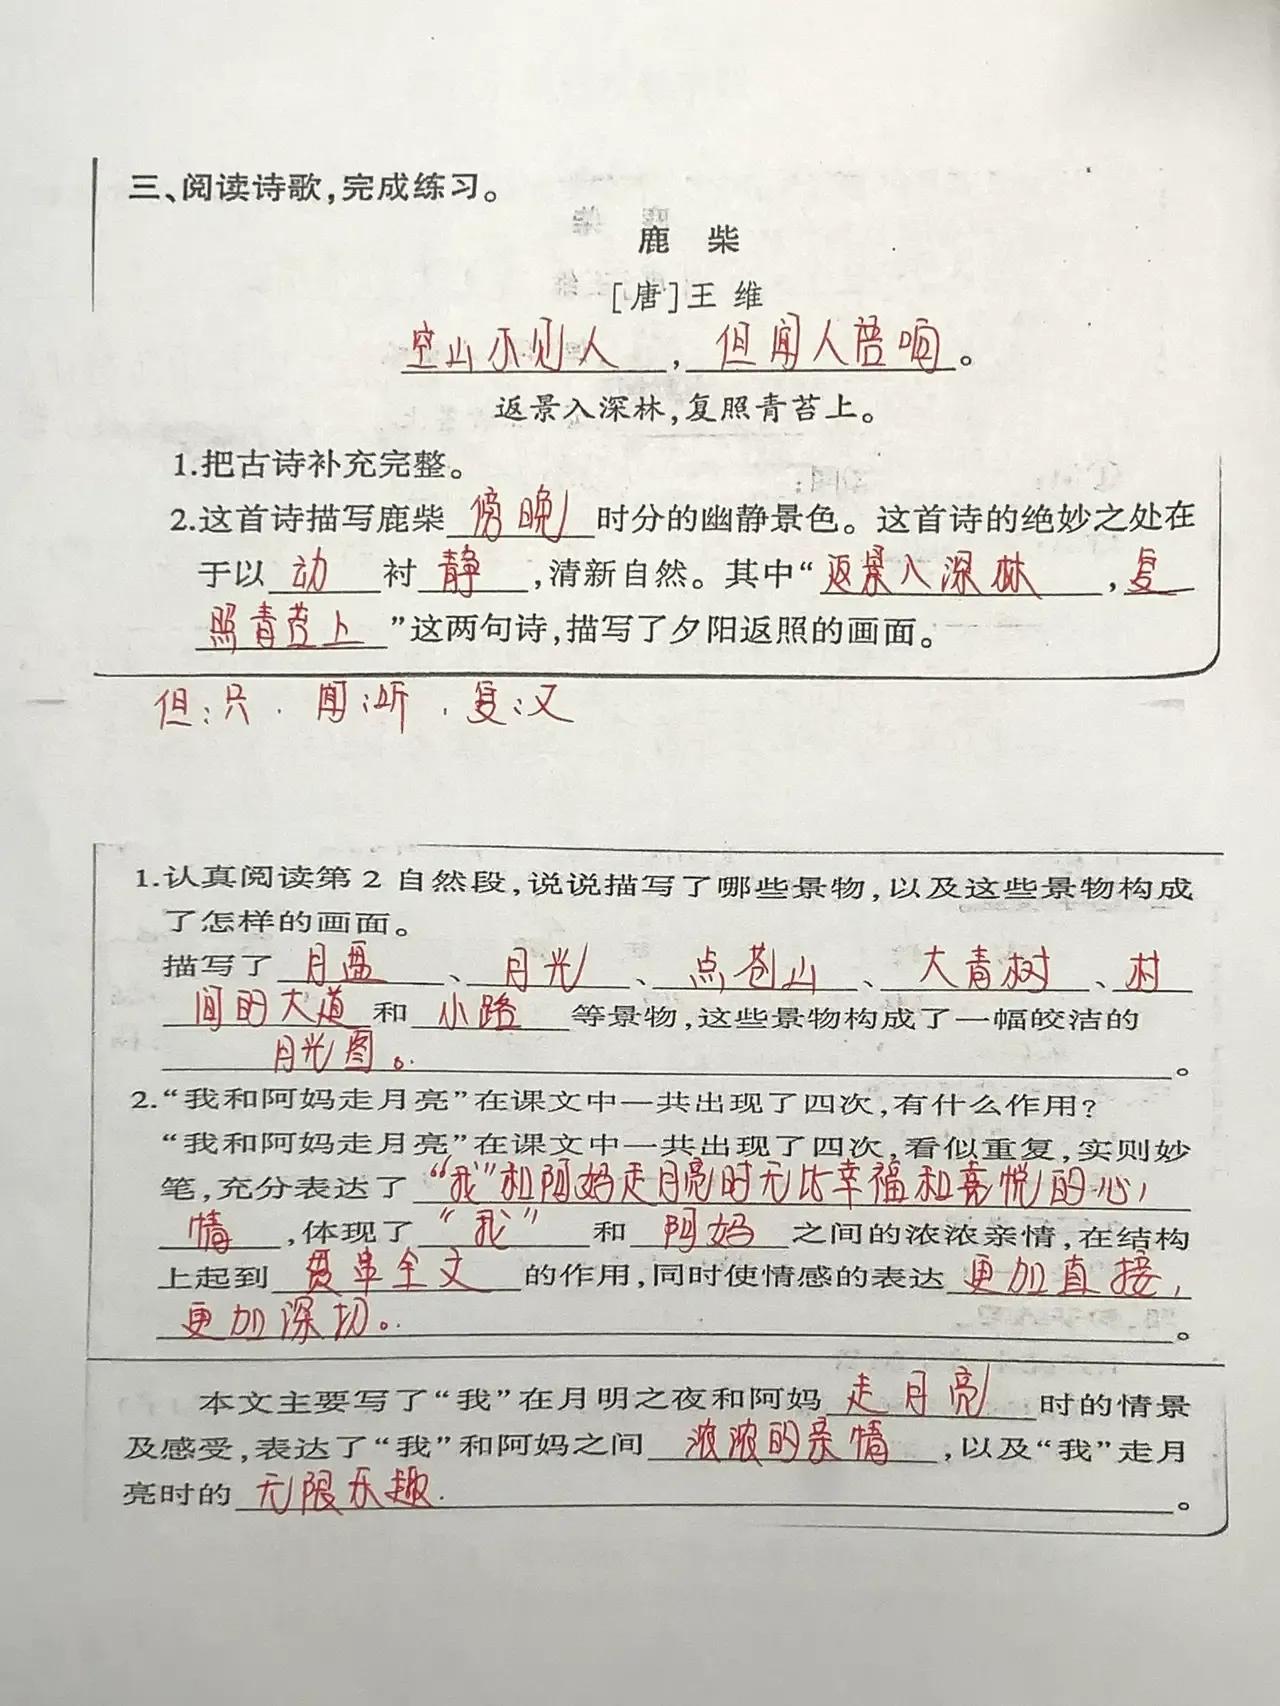 三、阅读诗歌,完成练习。
鹿 柴
[唐]王 维
空山不见人,但闻人语响。
返景入深林,复照青苔上。
1.把古诗补充完整。
2.这首诗描写鹿柴 傍晚 时分的幽静景色。这首诗的绝妙之处在
于以 动 衬 静 ,清新自然。其中“返景入深林,复
照青苔上”这两句诗,描写了夕阳返照的画面。
但:只. 闻:听. 复:又
1.认真阅读第 2 自然段,说说描写了哪些景物,以及这些景物构成
了怎样的画面。
描写了 月盘、月光、点苍山、大青树、村
间的大道 和 小路 等景物,这些景物构成了一幅皎洁的
月光图。。
2.“我和阿妈走月亮”在课文中一共出现了四次,有什么作用?
“我和阿妈走月亮”在课文中一共出现了四次,看似重复,实则妙
笔,充分表达了“我”和阿妈走月亮时无比幸福和喜悦的心
情,体现了 “我” 和 阿妈 之间的浓浓亲情,在结构
上起到 贯串全文 的作用,同时使情感的表达 更加直接,
更加深切。。
本文主要写了“我”在月明之夜和阿妈 走月亮 时的情景
及感受,表达了“我”和阿妈之间 浓浓的亲情 ,以及“我”走月
亮时的 无限乐趣. 。